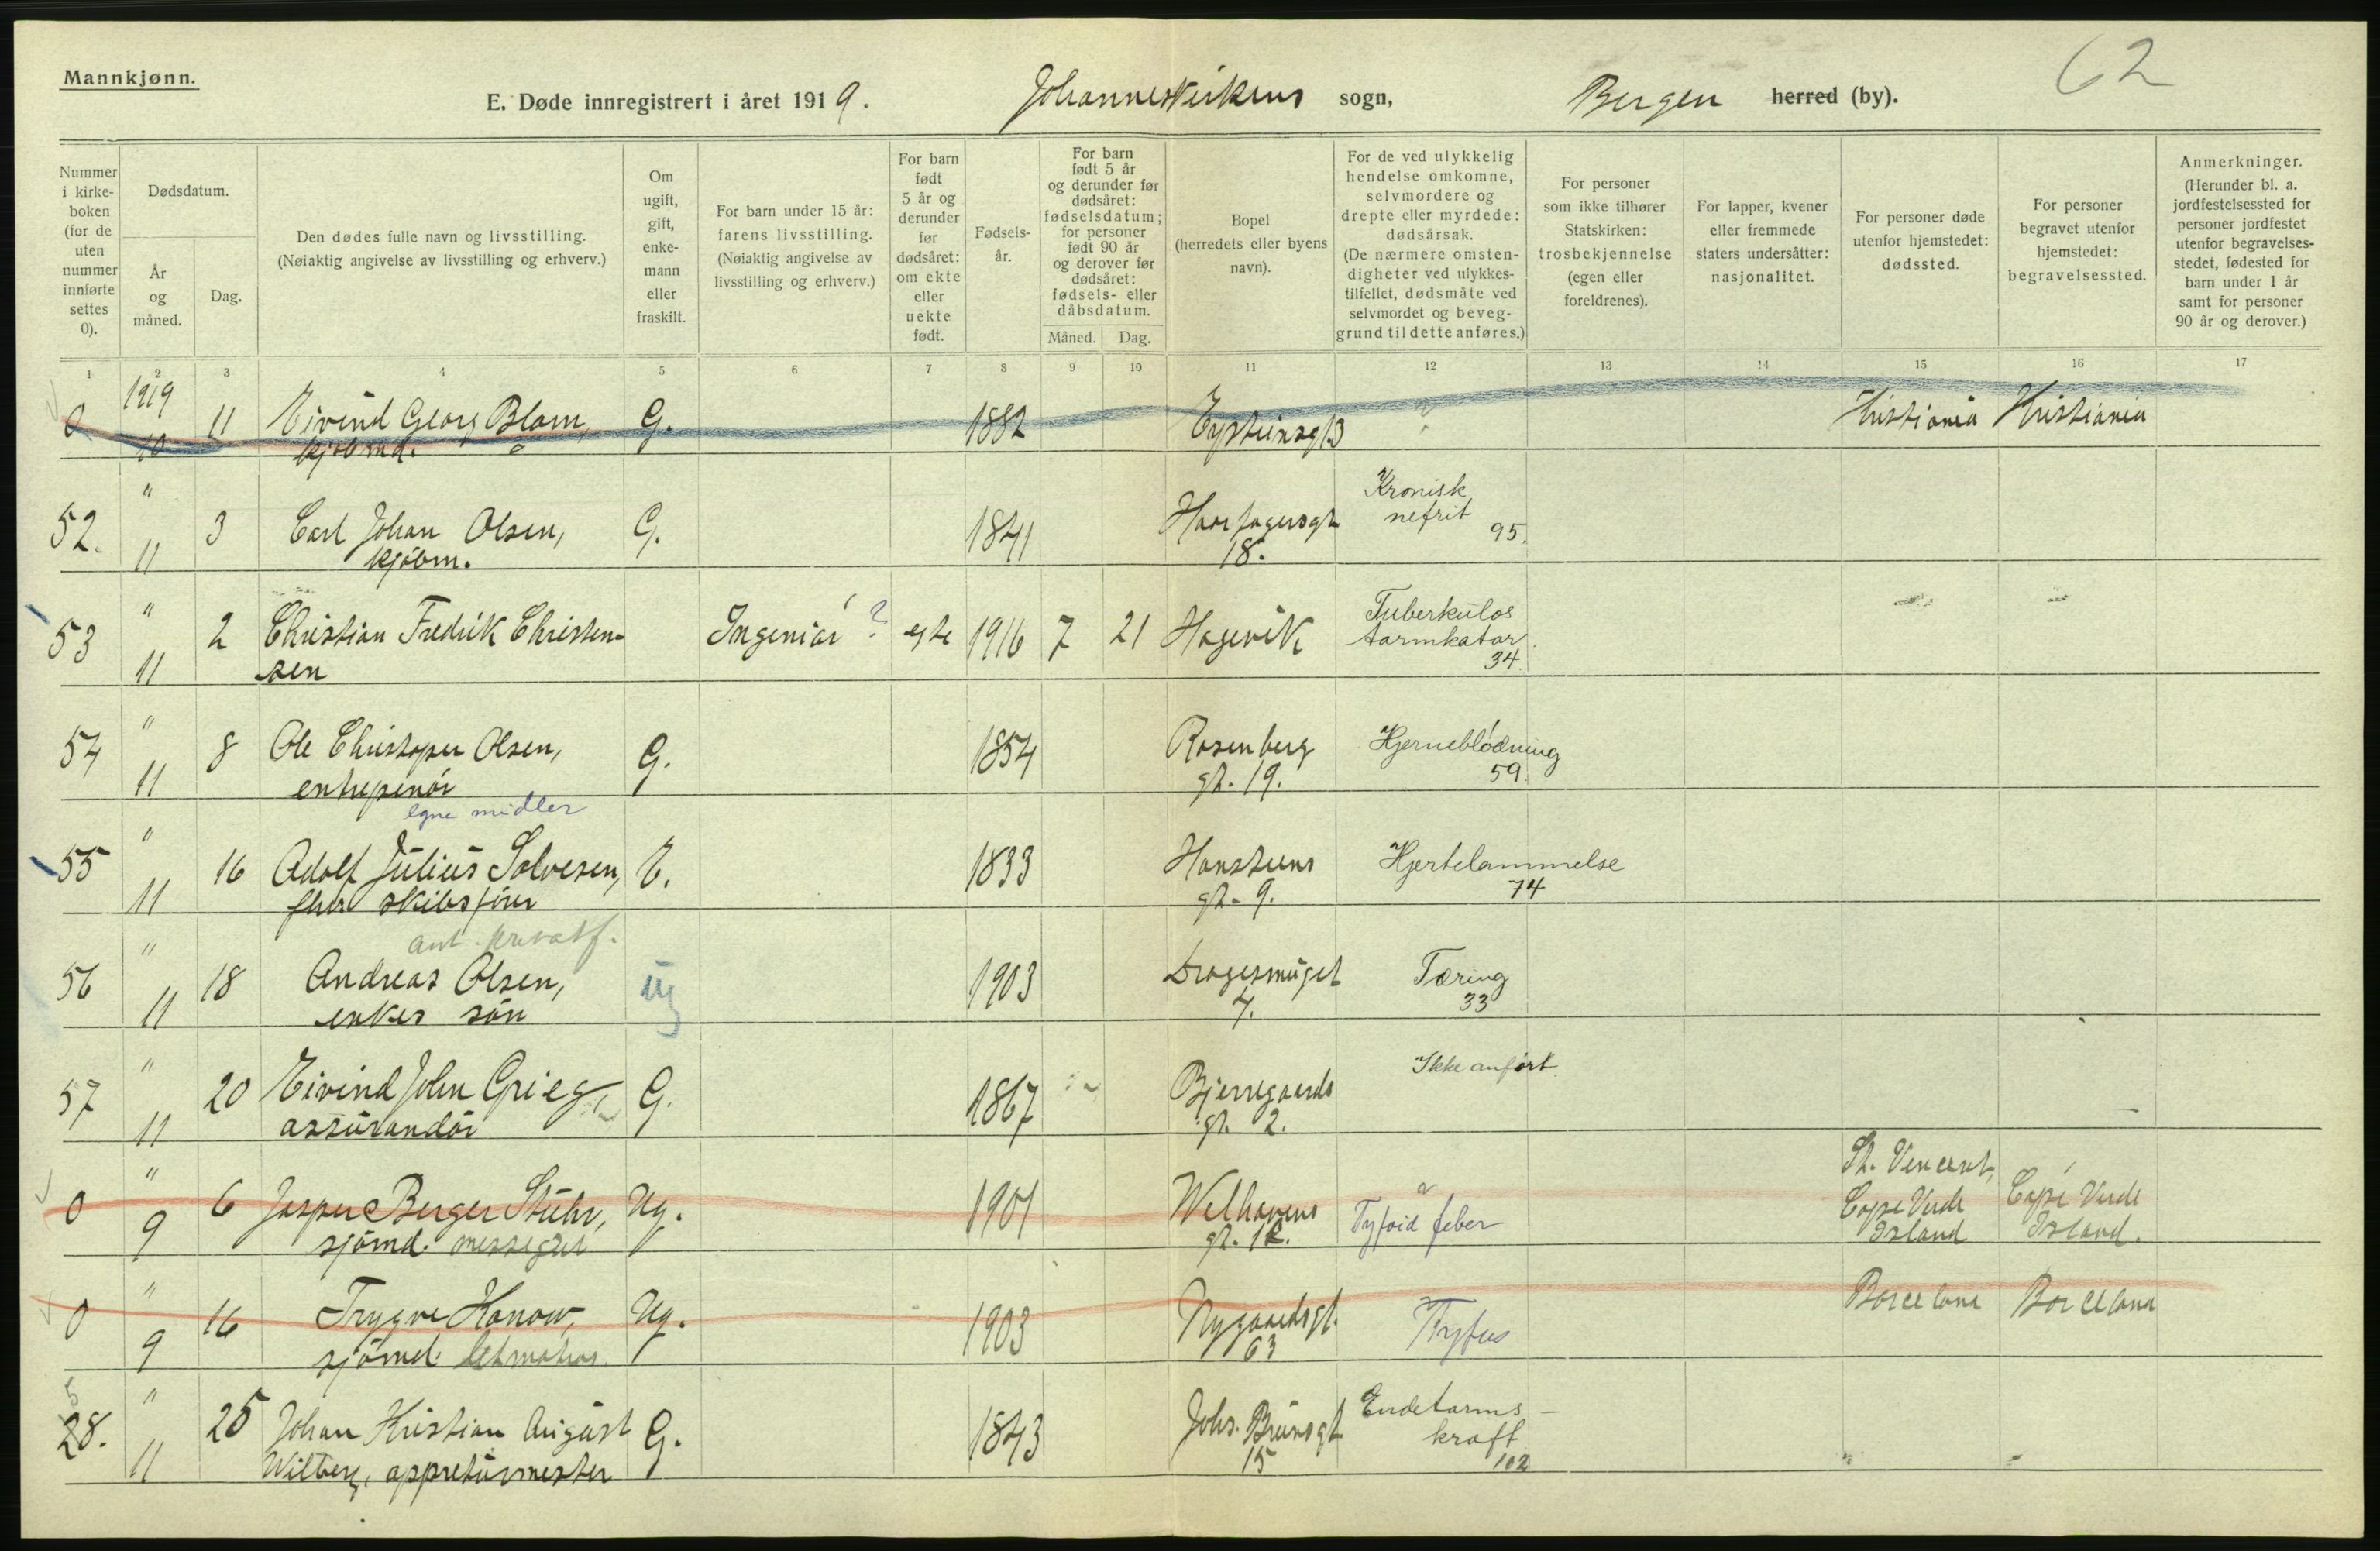 Mannkjønn.
62
E. Døde innregistrert i året 1919. Johanneskirkens sogn, Bergen herred (by).
Nummer i kirke-boken (for de uten nummer innførte settes 0).
Dødsdatum.
År og måned.
Dag.
Den dødes fulle navn og livsstilling.
(Nøiaktig angivelse av livsstilling og erhverv.)
Om ugift, gift, enke-mann eller fraskilt.
For barn under 15 år: farens livsstilling.
(Nøiaktig angivelse av livsstilling og erhverv.)
For barn født 5 år og derunder før dødsåret: om ekte eller uekte født.
Fødsels-år.
For barn født 5 år og derunder før dødsåret: fødselsdatum; for personer født 90 år og derover før dødsåret: fødsels- eller dåbsdatum.
Måned. Dag.
Bopel
(herredets eller byens navn).
For de ved ulykkelig hendelse omkomne, selvmordere og drepte eller myrdede: dødsårsak.
(De nærmere omsten-digheter ved ulykkes-tilfellet, dødsmåte ved selvmordet og beveg-grund til dette anføres.)
For personer som ikke tilhører Statskirken: trosbekjennelse (egen eller foreldrenes).
For lapper, kvener eller fremmede staters undersåtter: nasjonalitet.
For personer døde utenfor hjemstedet: dødssted.
For personer begravet utenfor hjemstedet: begravelsessted.
Anmerkninger.
(Herunder bl. a. jordfestelsessted for personer jordfestet utenfor begravelses-stedet, fødested for barn under 1 år samt for personer 90 år og derover.)
1 2 3 4 5 6 7 8 9 10 11 12 13 14 15 16 17
1919
0 10 11 Eivind Georg Blom, G. 1882 Eysteinsgt 3 Kristiania Kristiania
kjøbmd.
52. " 11 3 Carl Johan Olsen, G. 1841 Haarfagersgt 18. Kronisk nefrit 95.
kjöbm.
53 " 11 2 Christian Fredrik Christen- Ingeniör ? egte 1916 7 21 Hagevik Tuberkulos tarmkatar. 34
sen
54 " 11 8 Ole Christoper Olsen, G. 1854 Rosenberg gt. 19. Hjerneblödning 59.
entrepenör
egne midler
55 " 11 16 Adolf Julius Salvesen, E. 1833 Hansteens gt. 9. Hjertelammelse 74
fhv. skibsförer
ant. privatf.
56 " 11 18 Andreas Olsen, ug 1903 Dragesmuget 7. Tæring 33
enkes sön
57 " 11 20 Eivind John Grieg, G. 1867 Bjerregaards gt. 2. Ikke anfört
assurandör
0 " 9 6 Jasper Berger Stuhr, Ug. 1901 Welhavens gt. Tyfoid feber St. Vincent, Cape Verde Island Cape Verde Island.
sjömd. messegut
0 " 9 16 Trygve Hanow, Ug. 1903 Nygaardsgt. 63 Tyfus Barcelona Barcelona
sjömd. letmatros.
28. 5 " 11 25 Johan Kristian August G. 1843 Johs. Brunsgt 15 Endetarms- kræft 102
Wilberg, appreturmester